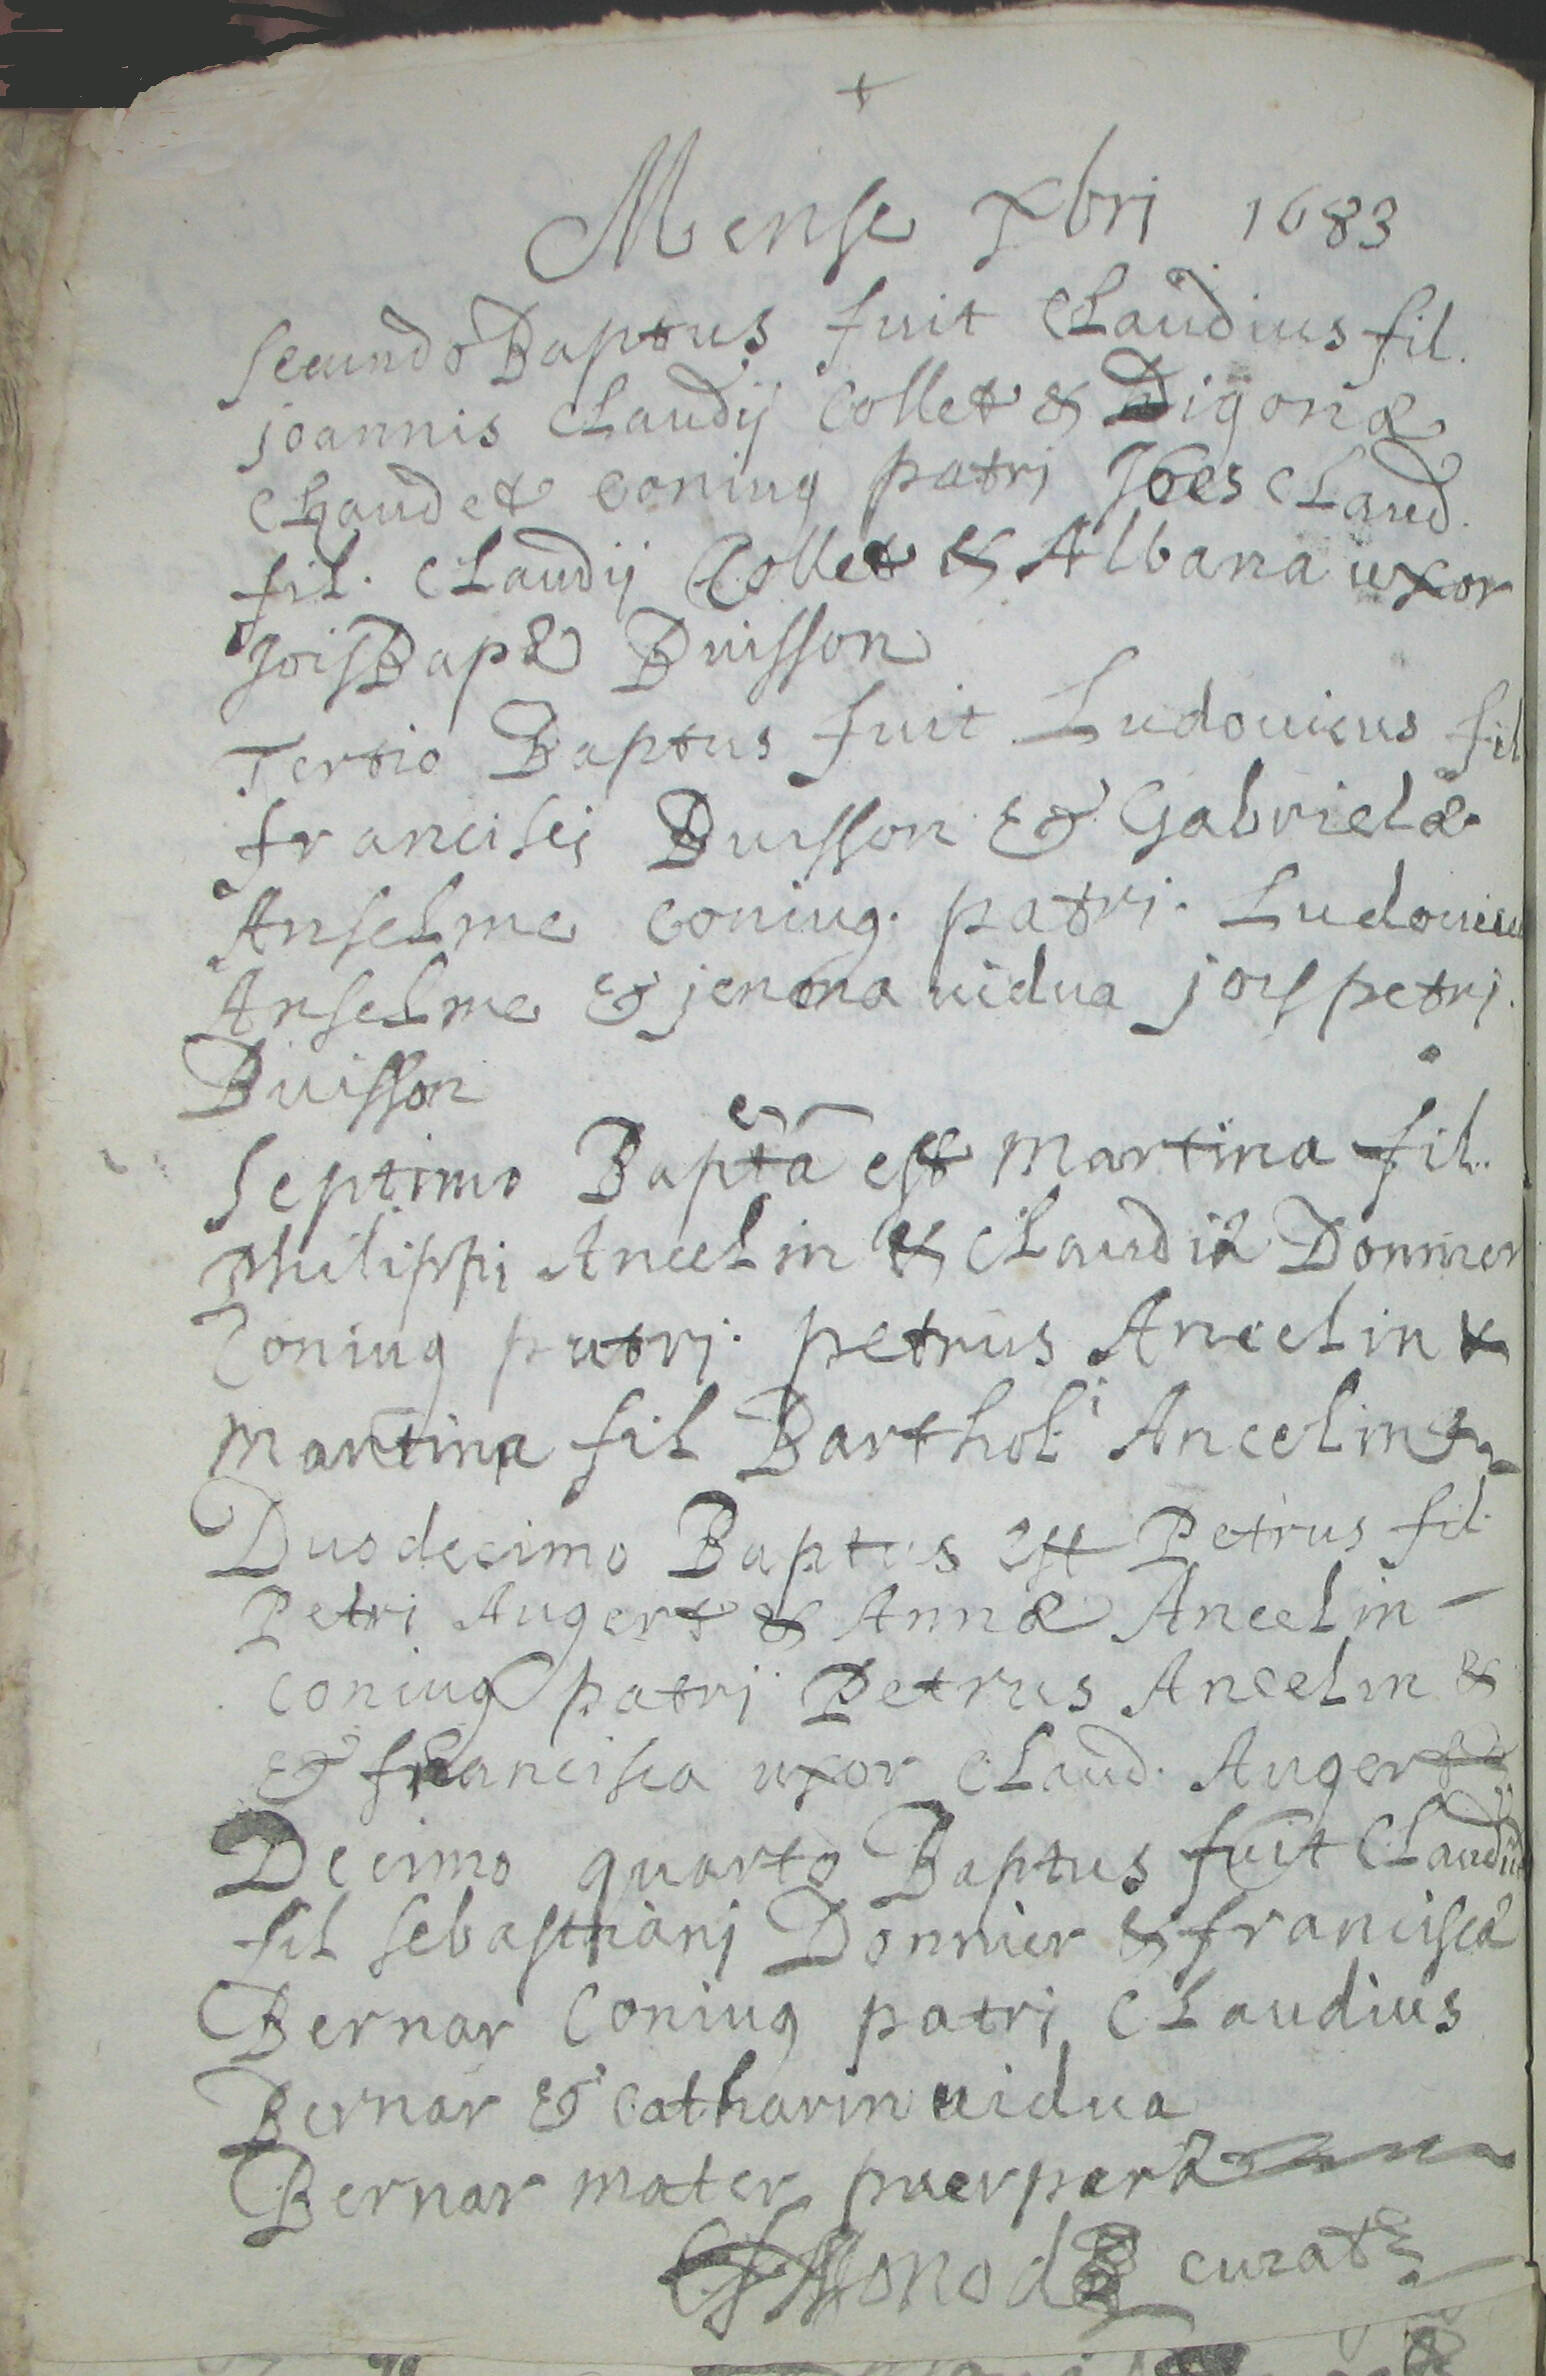 +
Mense Xbri 1683
secundo Baptus fuit Claudius fil.
joannis Claudij Collet & Digonæ
Chaudet coniug patrj Joes Claud.
fil. Claudij Collet & Albana uxor
Jois Bapæ Buisson
Tertio Baptus fuit Ludouicus fil
francisci Buisson & Gabrielæ
Anselme coniug. patrj. Ludouicus
Anselme & jenona uidua jois petrj.
Buisson
Septimo Bapta est Martina fil.
Philippi Ancelin & Claudiæ Donnier
Coniug patrj. petrus Ancelin &
Martina fil Bartholi Ancelin
Duodecimo Baptus est Petrus fil.
Petri Augert & Annæ Ancelin -
coniug patrj Petrus Ancelin &
& francisca uxor Claud. Augert
Decimo quarto Baptus fuit Claudius
fil sebastianj Donnier & franciscæ
Bernar Coniug patrj Claudius
Bernar & Catharin uidua
Bernar mater puerperæ
Monod curat